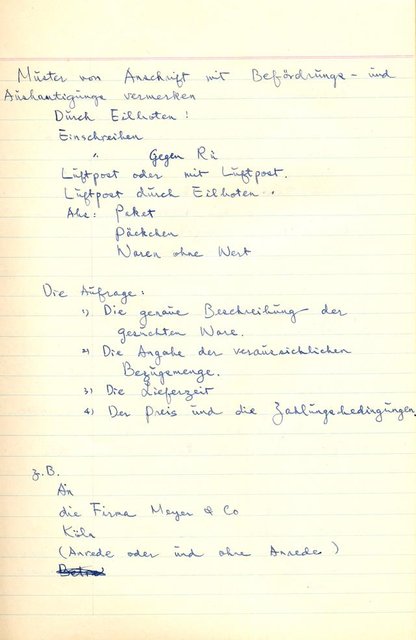 Muster von Anschrift mit Beförderungs- und
Aushantigungs vermerken
Durch Eilboten!
Einschreiben
" Gegen Rü
Luftpost oder mit Luftpost.
Luftpost durch Eilboten.
Abs: Paket
Päckchen
Waren ohne Wert
Die Aufrage:
1) Die genaue Beschreibung der
gesuchten Ware.
2) Die Angabe der voraussichlichen
Bezugsmenge.
3) Die Lieferzeit
4) Der Preis und die Zahlungsbedingungen
z.B.
An
die Firma Meyer & Co
Köln
(Anrede oder und ohne Anrede)